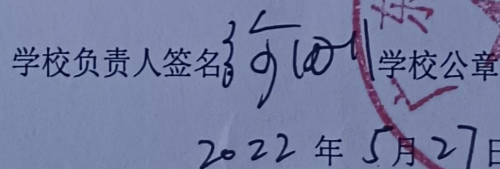 学校负责人签名 学校公章
2022 年 5月 27日